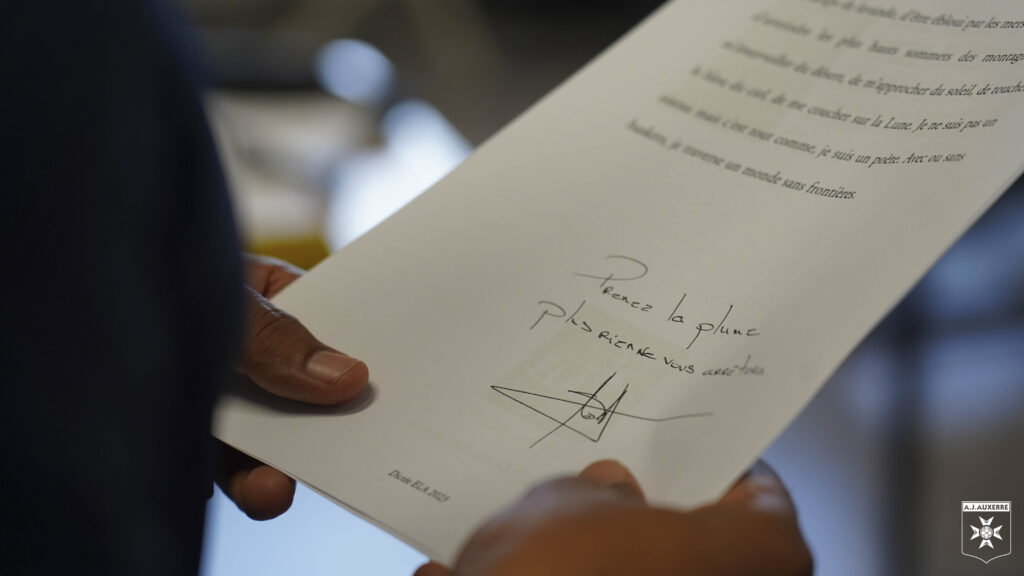 de lavande, d'être ébloui par les mers
d'atteindre les plus hauts sommets des montag
m'émerveiller du désert, de m'approcher du soleil, de toucher
le bleu du ciel, de me coucher sur la Lune. Je ne suis pas un
oiseau, mais c'est tout comme, je suis un poète. Avec ou sans
je traverse un monde sans frontières.
Prenez la plume
plus rien ne vous arrêtera
Dictée ELA 2023
A.J.AUXERRE